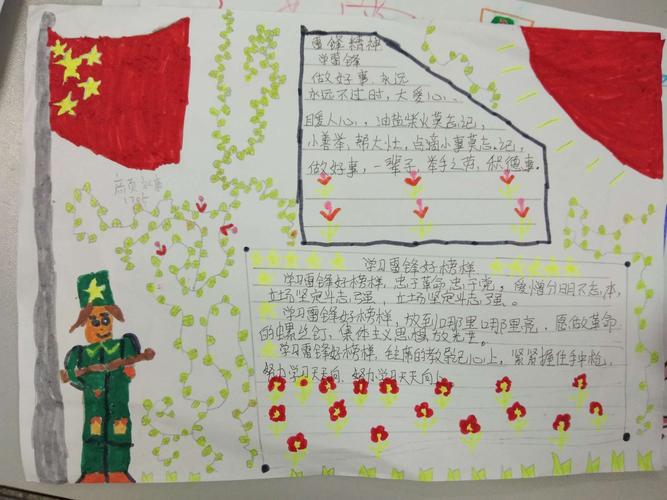 雷锋精神
学雷锋
做好事 永远
永远不过时,大爱心、
暖人心、油盐柴火莫忘记,
小善举,帮大灶,点滴小事莫忘记,
做好事,一辈子,举手之劳,积德事。
学习雷锋好榜样
学习雷锋好榜样,忠于革命忠于党。爱憎分明不忘本,
立场坚定斗志强,立场坚定斗志强。
学习雷锋好榜样,放到哪里哪里亮,愿做革命
的螺丝钉,集体主义思想放光芒。
学习雷锋好榜样,主席的教导记心上,紧紧握住手中枪,
努力学习天天向,努力学习天天向上